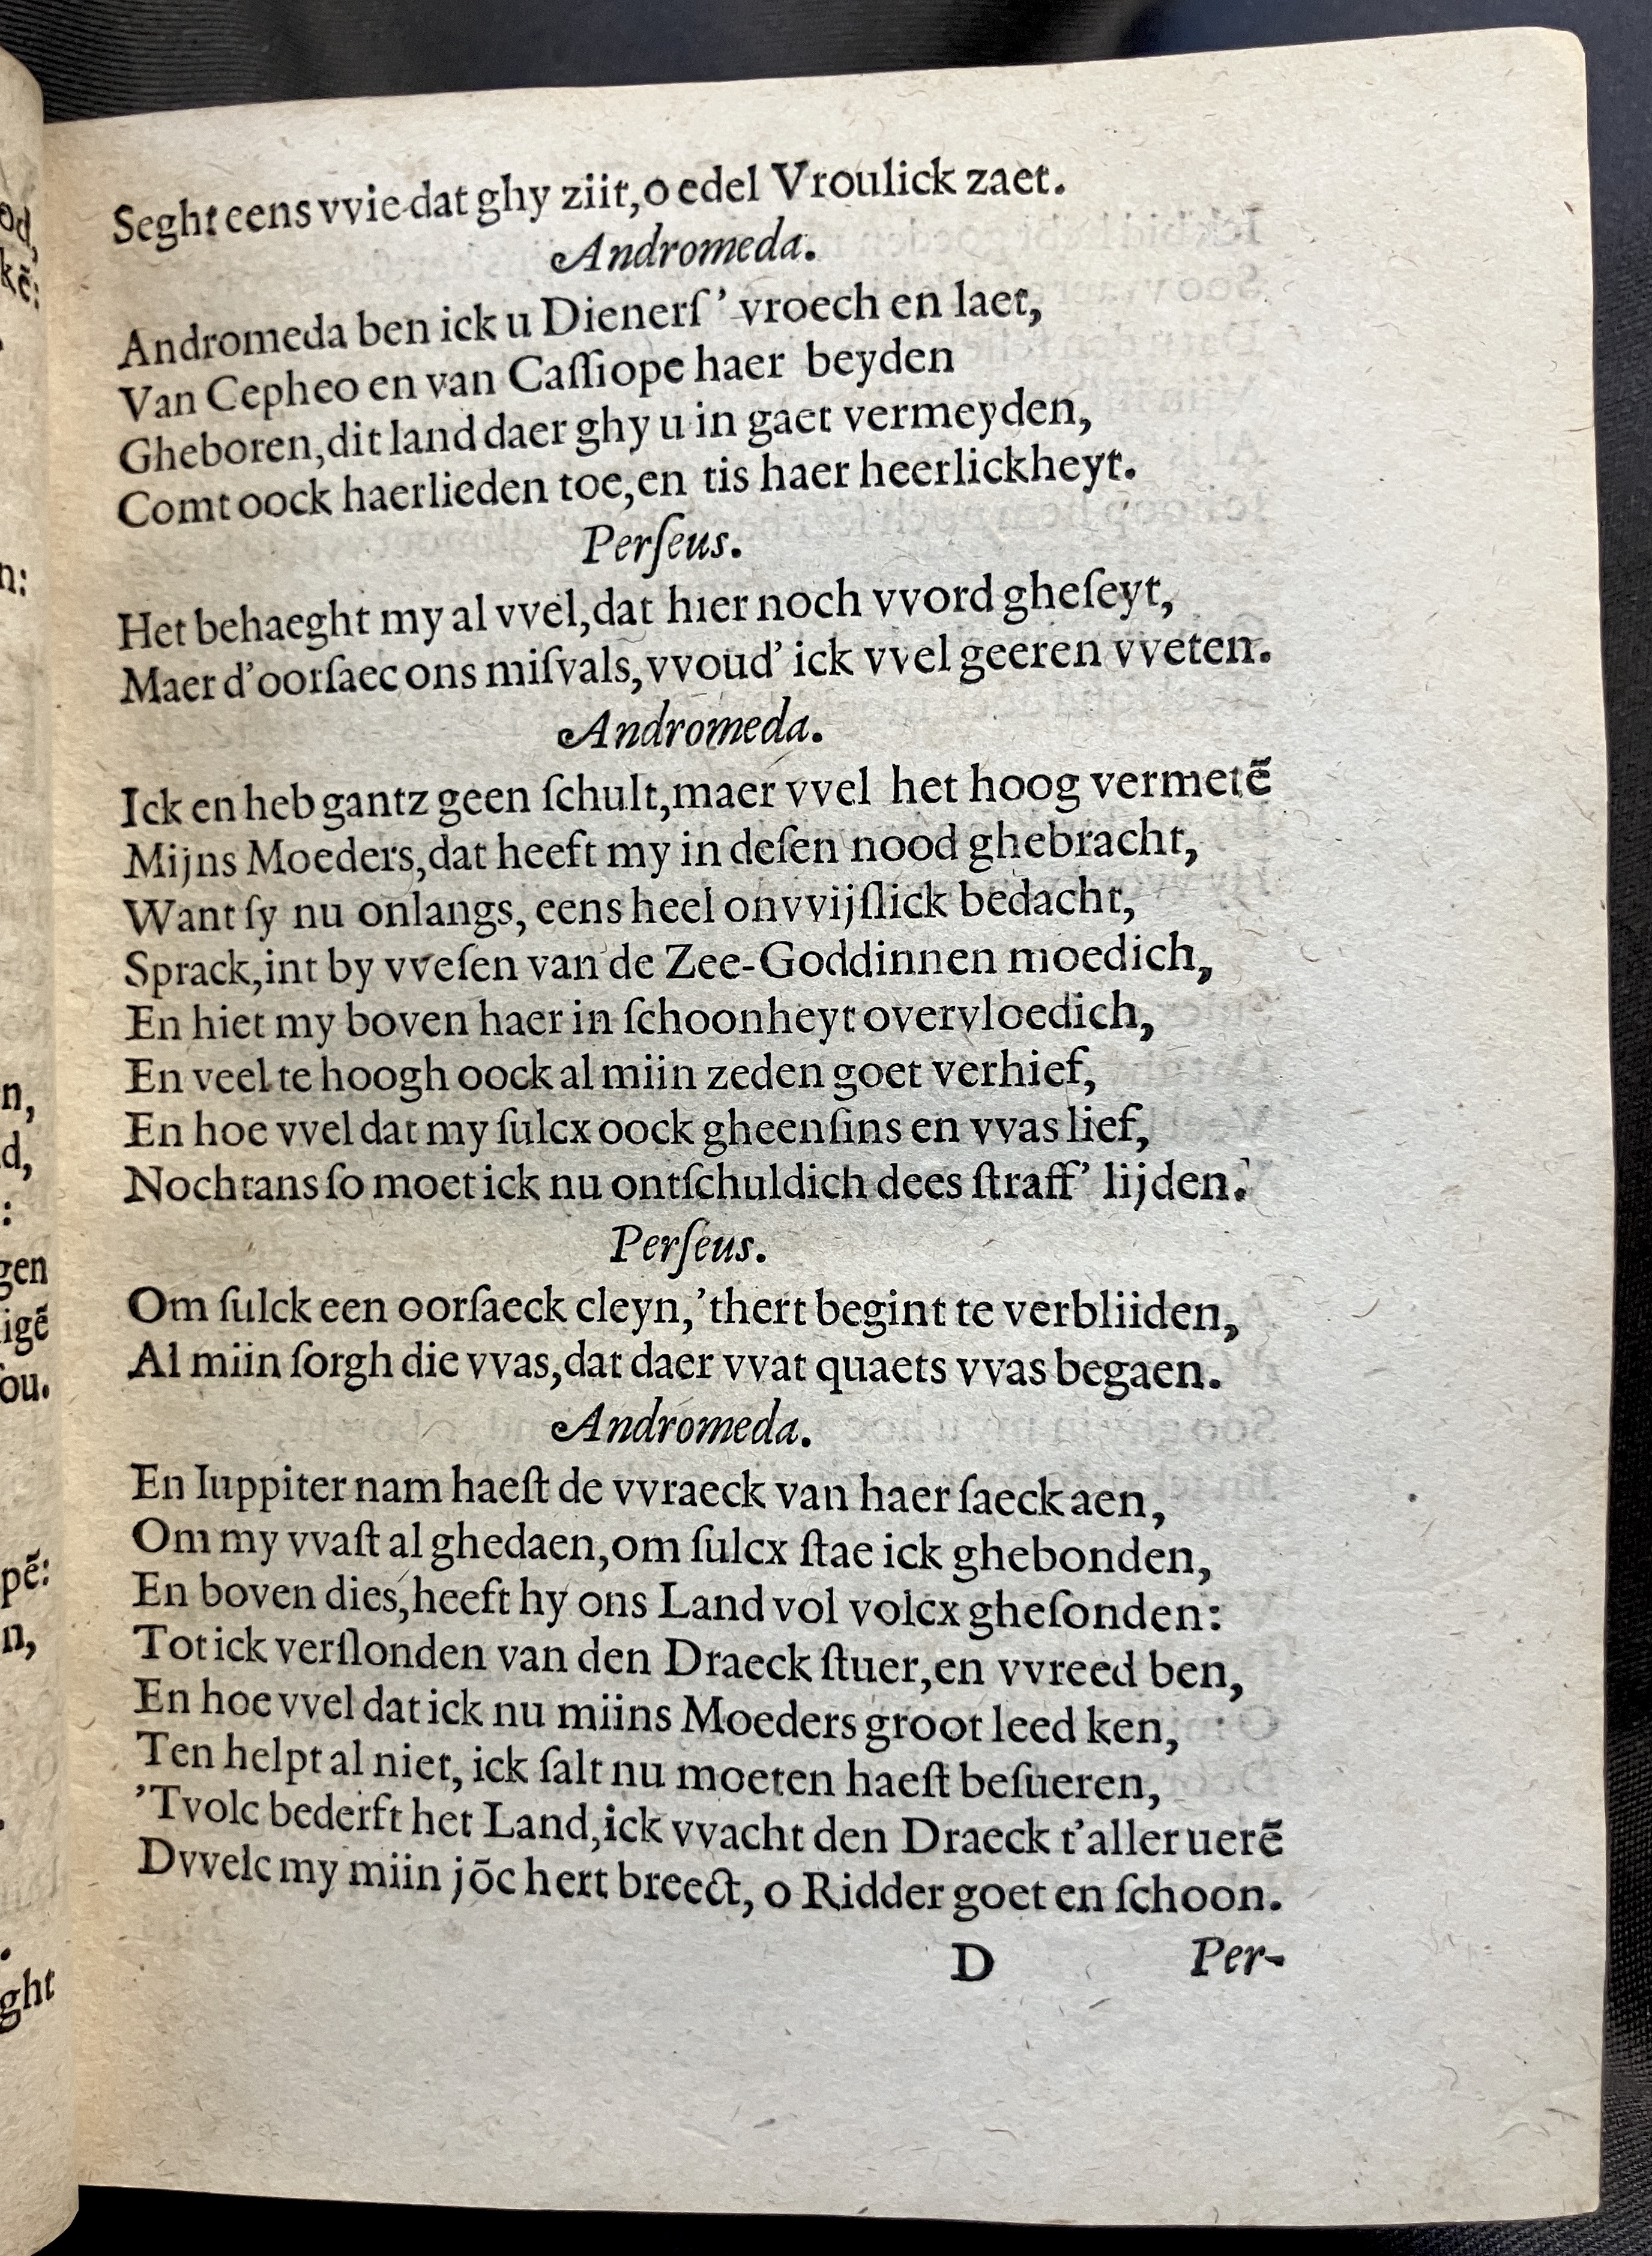 Seght eens vvie dat ghy ziit, o edel Vroulick zaet.
Andromeda.
Andromeda ben ick u Dienerſ’ vroech en laet,
Van Cepheo en van Caſſiope haer beyden
Gheboren, dit land daer ghy u in gaet vermeyden,
Comt oock haerlieden toe, en tis haer heerlickheyt.
Perſeus.
Het behaeght my al vvel, dat hier noch vvord gheſeyt,
Maer d’oorſaec ons miſvals, vvoud’ ick vvel geeren vveten.
Andromeda.
Ick en heb gantz geen ſchult, maer vvel het hoog vermetẽ
Mijns Moeders, dat heeft my in deſen nood ghebracht,
Want ſy nu onlangs, eens heel onvvijſlick bedacht,
Sprack, int by vveſen van de Zee-Goddinnen moedich,
En hiet my boven haer in ſchoonheyt overvloedich,
En veel te hoogh oock al miin zeden goet verhief,
En hoe vvel dat my ſulcx oock gheenſins en vvas lief,
Nochtans ſo moet ick nu ontſchuldich dees ſtraff’ lijden.
Perſeus.
Om ſulck een oorſaeck cleyn, ’thert begint te verbliiden,
Al miin ſorgh die vvas, dat daer vvat quaets vvas begaen.
Andromeda.
En Iuppiter nam haeſt de vvraeck van haer ſaeck aen,
Om my vvaſt al ghedaen, om ſulcx ſtae ick ghebonden,
En boven dies, heeft hy ons Land vol volcx gheſonden:
Tot ick verſlonden van den Draeck ſtuer, en vvreed ben,
En hoe vvel dat ick nu miins Moeders groot leed ken,
Ten helpt al niet, ick ſalt nu moeten haeſt beſueren,
’Tvolc bederft het Land, ick vvacht den Draeck t’aller uerẽ
Dvvelc my miin jõc hert breect, o Ridder goet en ſchoon.
D Per-
od,
kẽ:
n:
n,
d,
:
gen
igẽ
ſou.
pẽ:
n,
.
ght